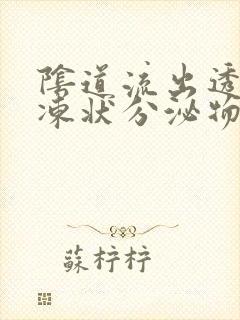 陰道流出透
凍狀分泌物
蘇梓梓